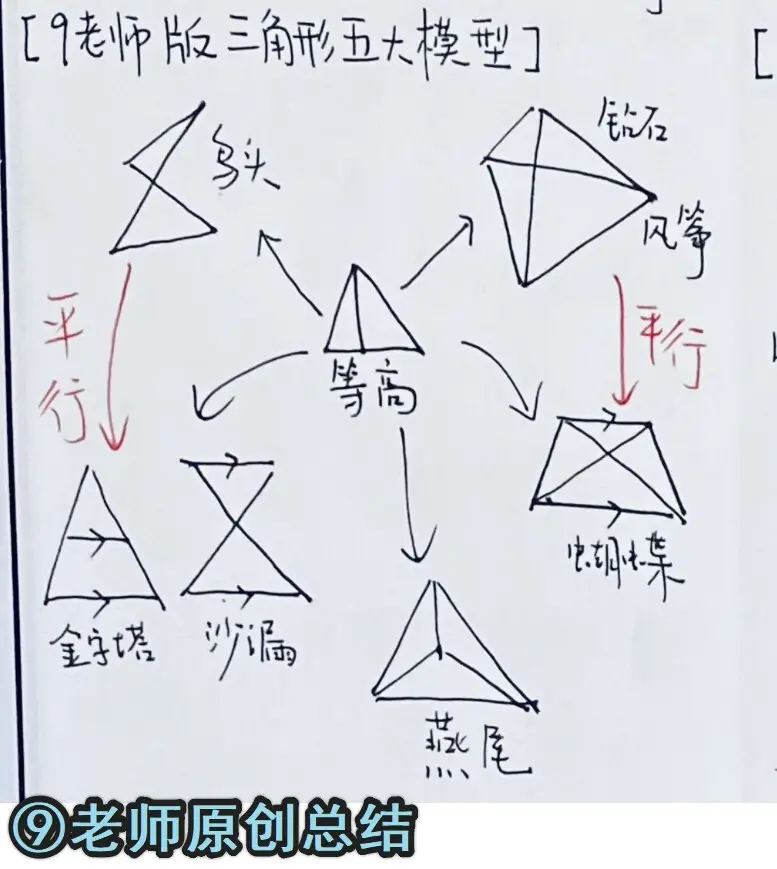 [9老师版三角形五大模型]
鸟头
钻石
风筝
平行
等高
平行
金字塔
沙漏
蝴蝶
燕尾
⑨老师原创总结